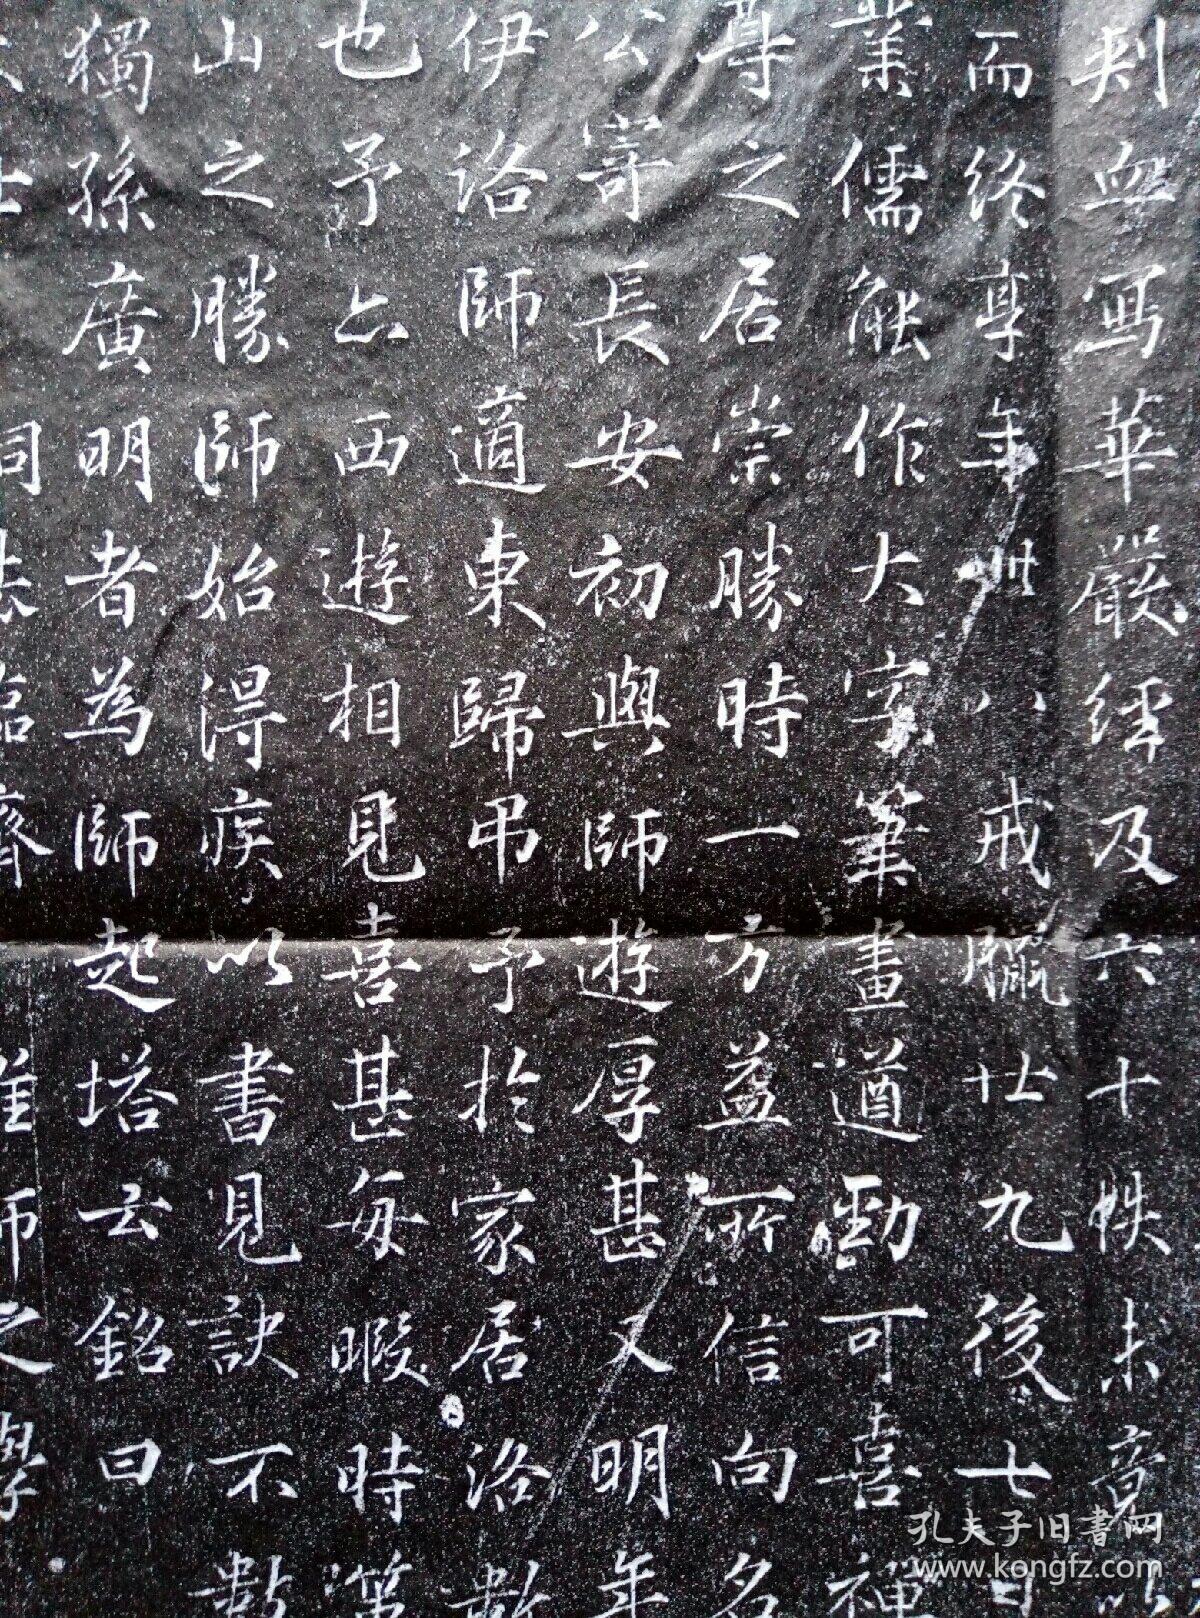 刺血寫華嚴經及六十帙未竟以
而終享年卅八戒臘廿九後七日
業儒能作大字筆畫遒勁可喜禪
尊之居崇勝時一方益所信向名
公寄長安初與師遊厚甚又明年
伊洛師適東歸弔予於家居洛數
也予亦西遊相見喜甚每暇時
山之勝師始得疾以書見訣不數
獨孫廣明者為師起塔云銘曰
師之學
孔夫子旧書网
www.kongfz.com